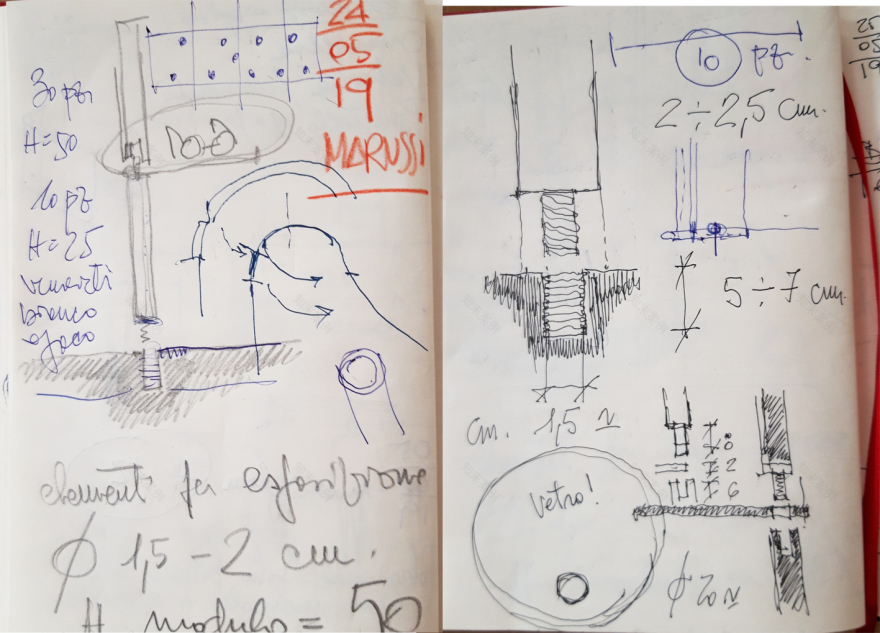 24
05
19
MARUSSI
30 pz
H=50
10 pz
H=25
bianco
opaco
elementi per esposizione
ϕ 1,5 - 2 cm.
H modulo = 50
10 pz.
2 ÷ 2,5 cm.
5 ÷ 7 cm.
cm. 1,5 ~
vetro!
2
6
ϕ 20 ~
25
05
19